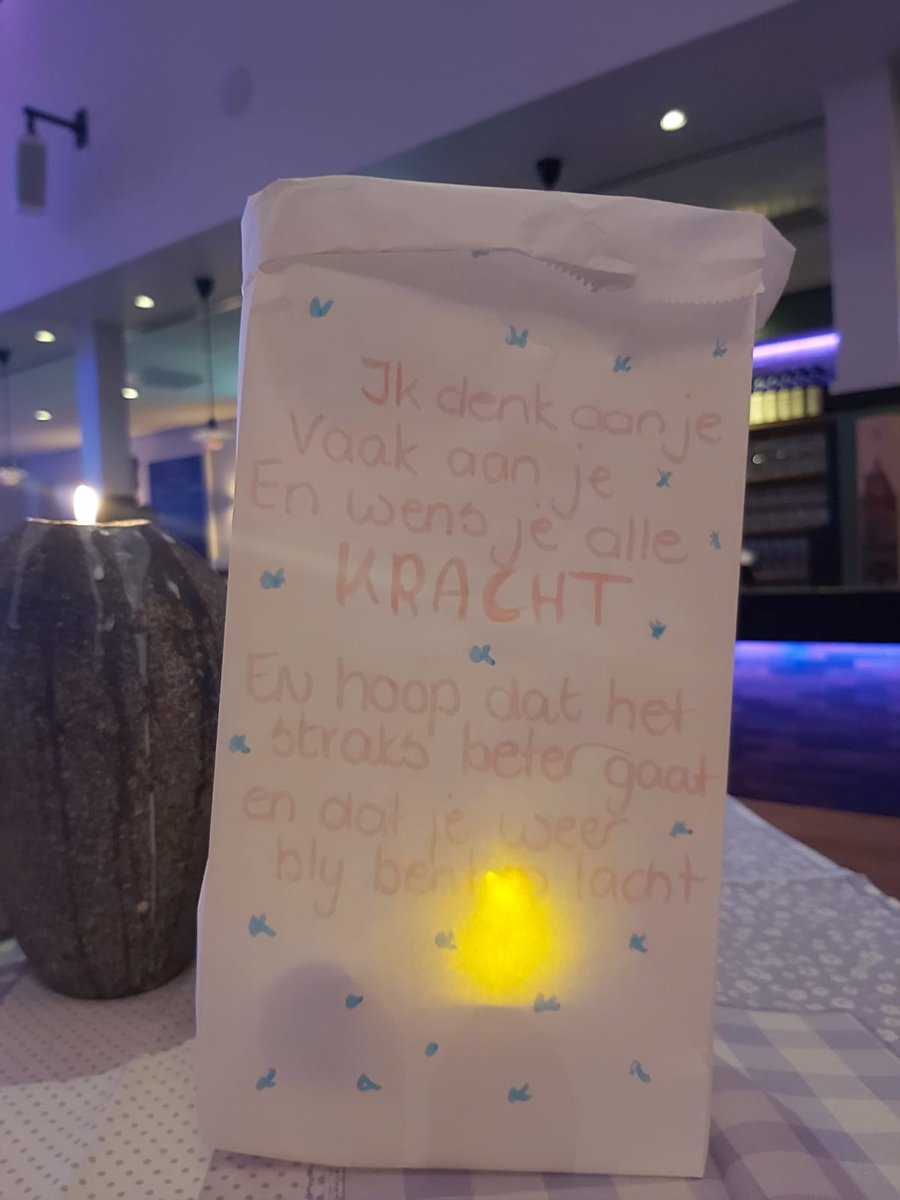 Ik denk aan je
Vaak aan je
En wens je alle
KRACHT
En hoop dat het
straks beter gaat
en dat je weer
bly bent lacht